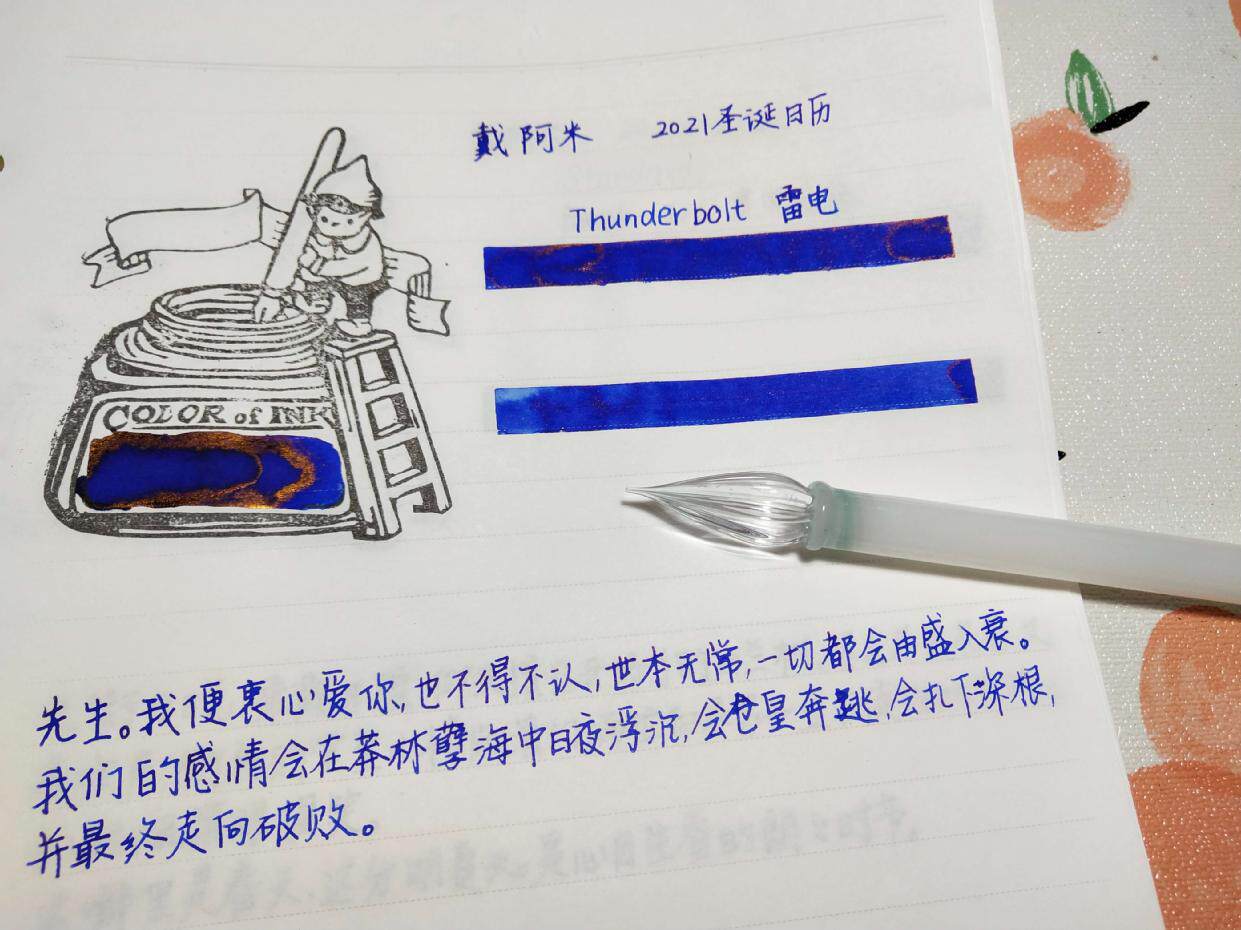 戴阿米 2021圣诞日历
Thunderbolt 雷电
COLOR of INK
先生。我便衷心爱你,也不得不认,世本无常,一切都会由盛入衰。
我们的感情会在莽林孽海中日夜浮沉,会仓皇奔逃,会扎下深根,
并最终走向破败。